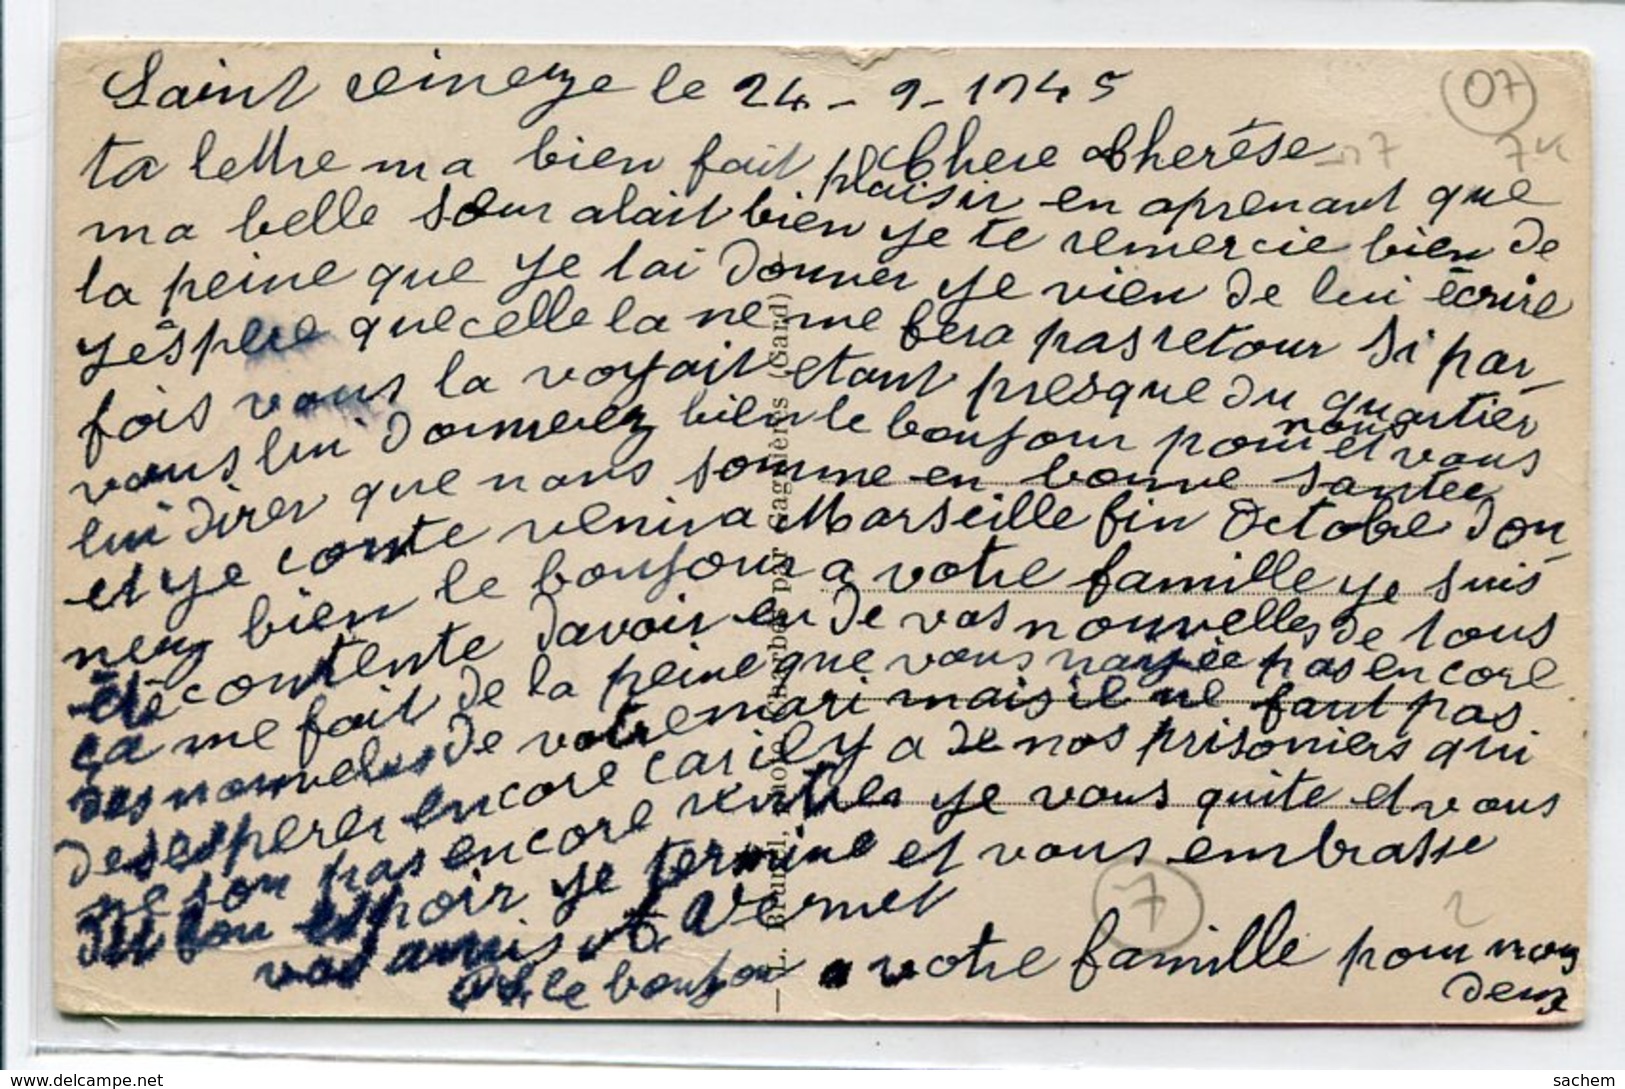 Saint Remeze le 24 - 9 - 1945
Chere Therése
ta lettre ma bien fait plaisir en aprenant que
ma belle sœur alait bien je te remercie bien de
la peine que je tai donner je vien de lui écrire
jéspère que celle la ne me fera pas retour si par-
fois vous la voyait etant presque du quartier
vous lui donnerez bien le bonjour pour nous et vous
lui direr que nous somme en bonne santée
et je conte venir a Marseille fin Octobre don-
nez bien le bonjour a votre famille je suis
été contente davoir eu de vos nouvelles de tous
ça me fait de la peine que vous nayée pas encore
des nouvelles de votre mari mais il ne faut pas
desesperer encore car il y a de nos prisoniers qui
ne son pas encore rentrer je vous quite et vous
bon espoir je termine et vous embrasse
vos amis A. Vernet
le bonjour a votre famille pour nous
deux
(07)
7
E. Brunel, photo, Charbes par Gagnières (Gard)
sachem
www.delcampe.net